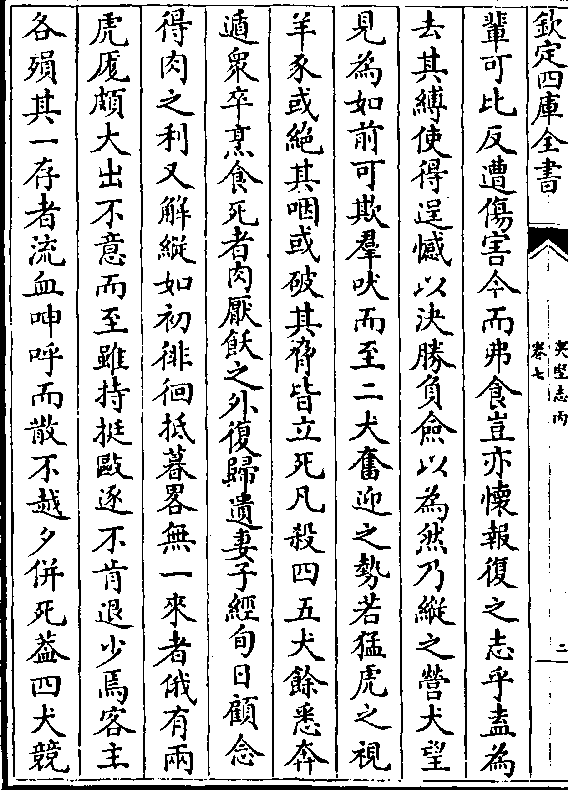 欽定四庫全書
夷堅志丙
卷七
二
輩可比反遭傷害今而弗食豈亦懷報復之志乎盍為
去其縛使得逞憾以決勝負僉以為然乃縱之營犬望
見為如前可欺羣吠而至二犬奮迎之勢若猛虎之視
羊豕或絕其咽或破其脅皆立死凡殺四五犬餘悉奔
遁衆卒烹食死者肉厭飫之外復歸遺妻子經旬日顧念
得肉之利又解縱如初徘徊抵暮畧無一來者俄有兩
虎厖頗大出不意而至雖持挺毆逐不肯退少焉客主
各殞其一存者流血呻呼而散不越夕併死葢四犬競